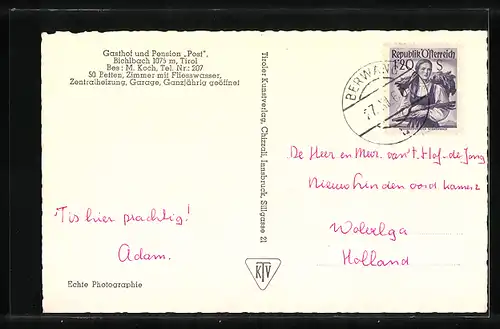 Gasthof und Pension „Post",
Bichlbach 1075 m, Tirol
Bes: M. Koch, Tel. Nr.: 207
50 Betten, Zimmer mit Fliesswasser,
Zentralheizung, Garage, Ganzjährig geöffnet
'Tis hier prachtig!
Adam.
Echte Photographie
Tiroler Kunstverlag, Chizzali, Innsbruck, Sillgasse 21
KTV
Republik Österreich
1·20 S
BERWANG
De Heer en Mevr. van 't Hof-de Jong
Holland